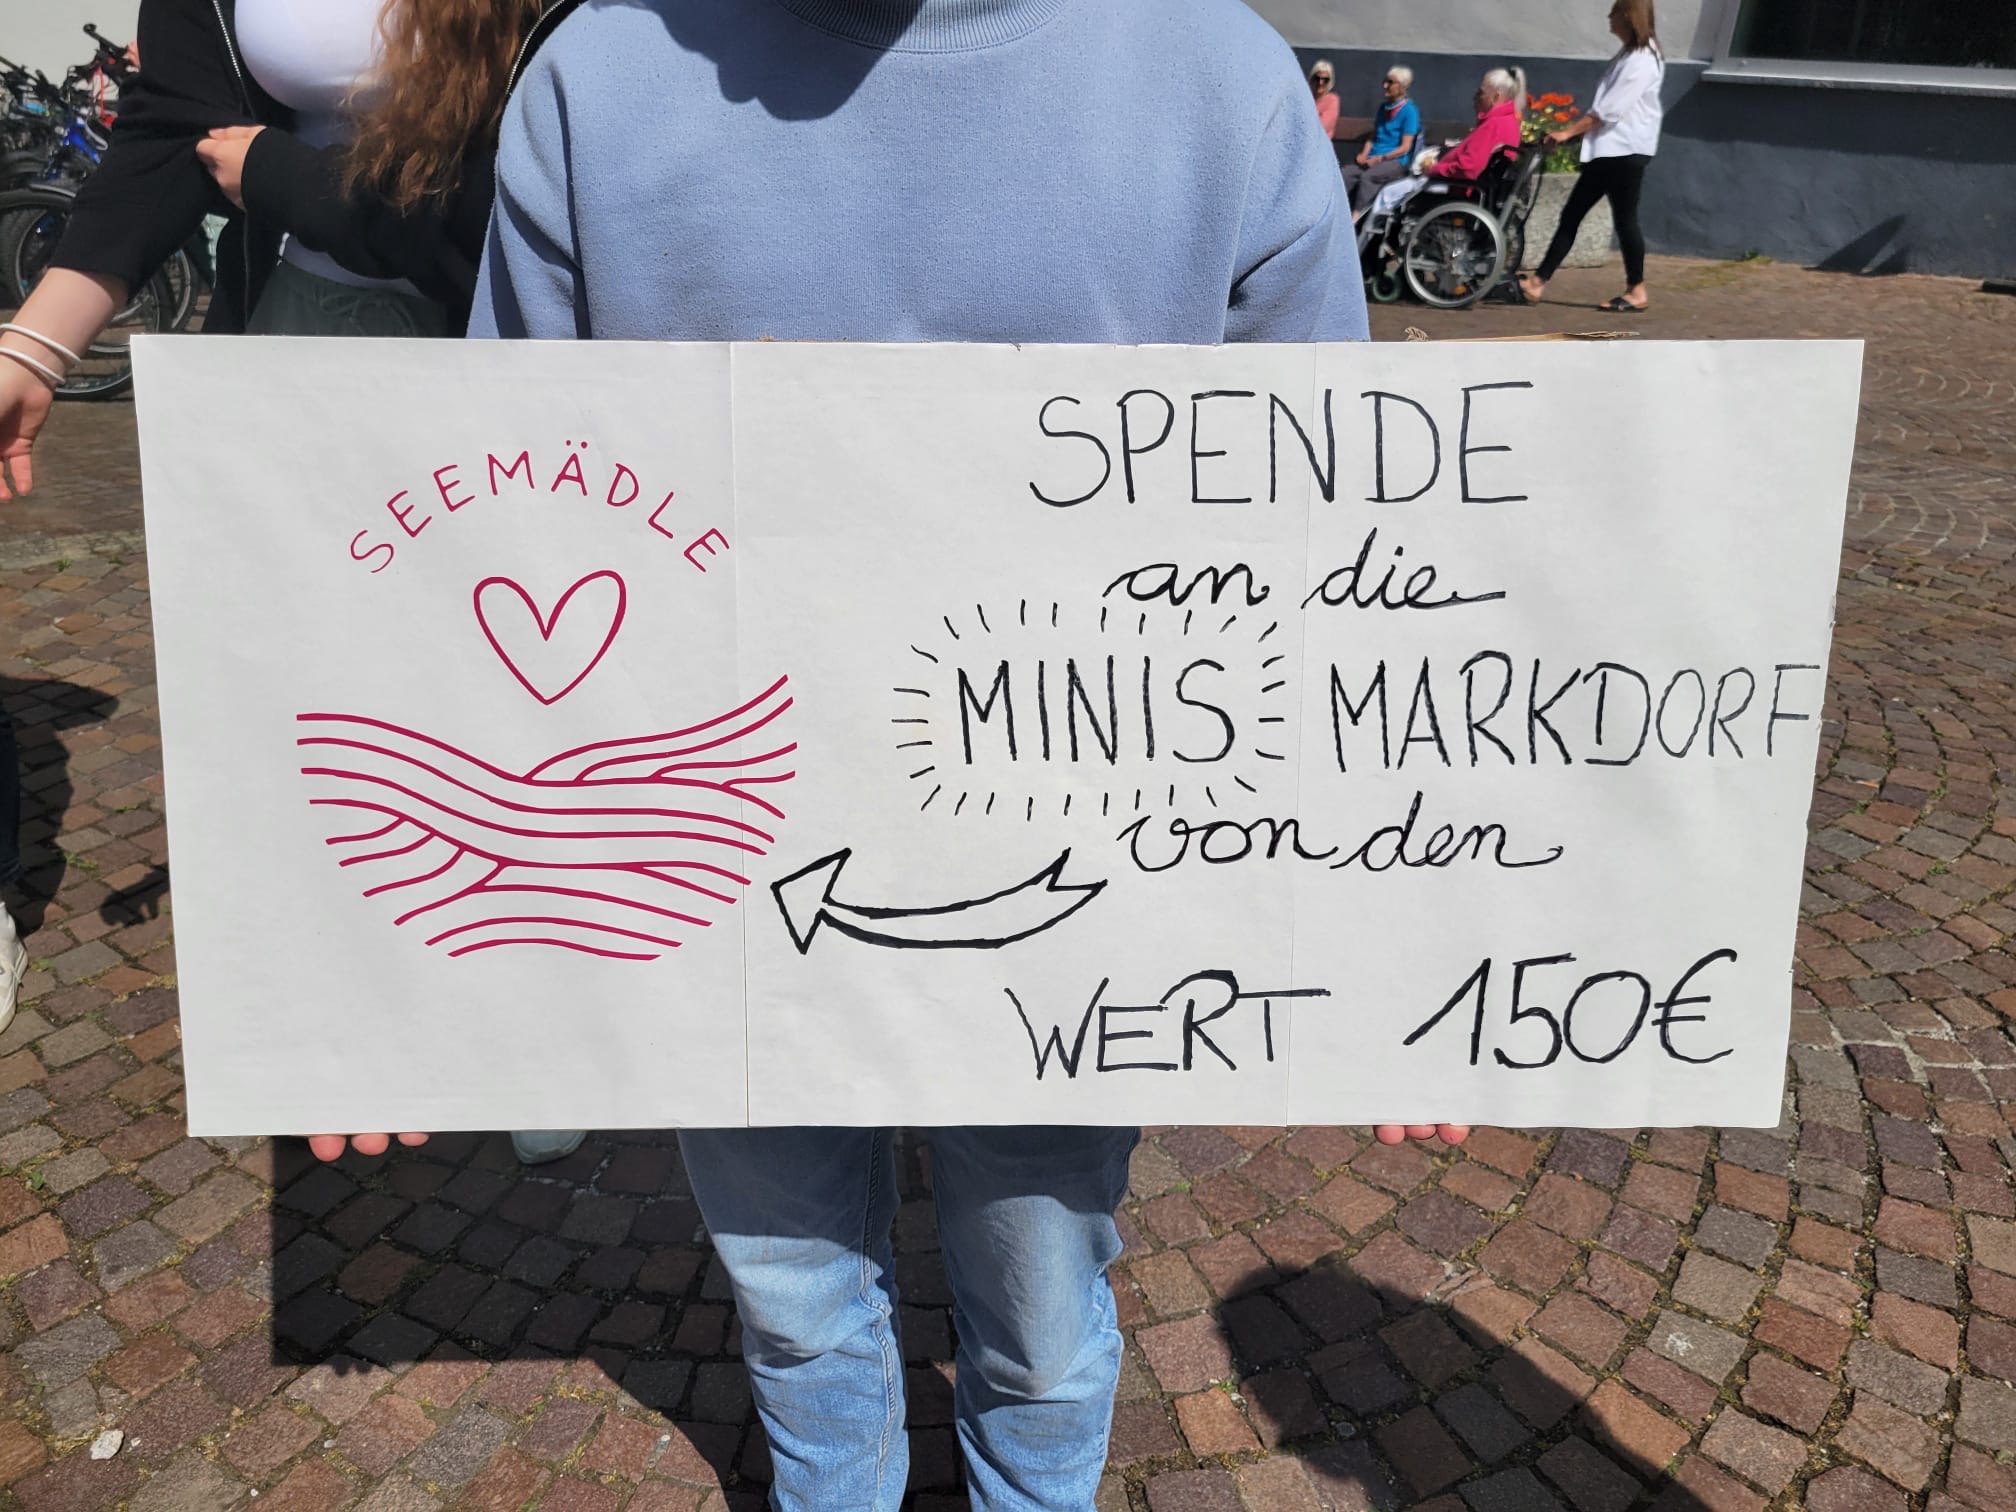 SEEMÄDLE
SPENDE
an die
MINIS MARKDORF
von den
WERT 150€